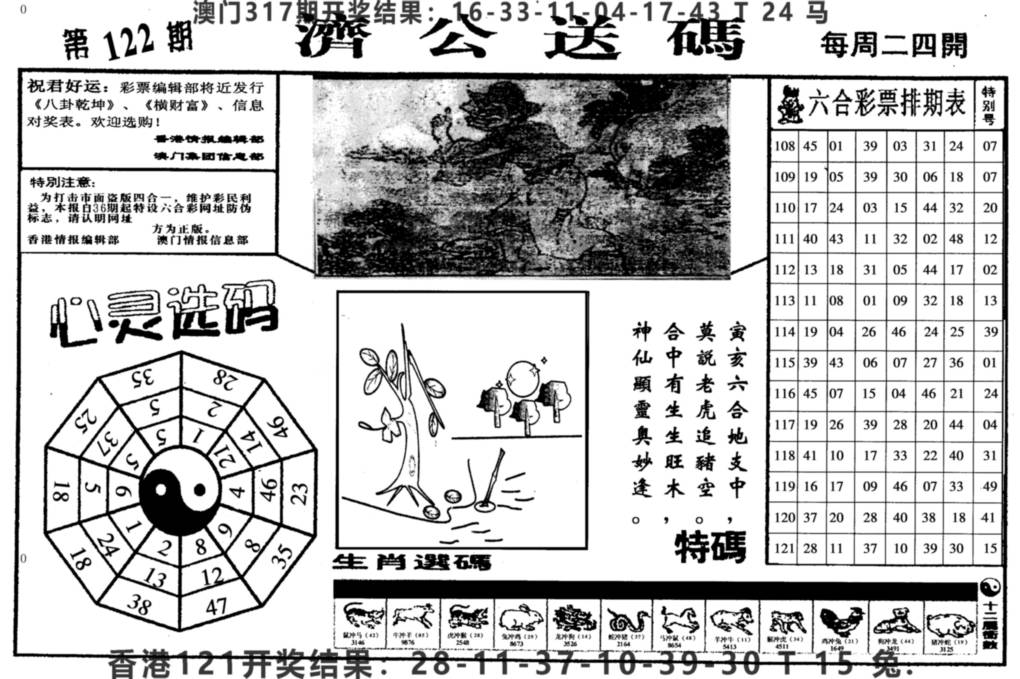 澳门317期开奖结果：16-33-11-04-17-43 T 24 马
第122期
濟公送碼
每周二四開
祝君好运：彩票编辑部将近发行
《八卦乾坤》、《横财富》、信息
对奖表。欢迎选购！
香港情报编辑部
澳门集团信息部
特别注意：
为打击市面盗版四合一，维护彩民利
益，本报自36期起特设六合彩网址防伪
标志，请认明网址
方为正版。
香港情报编辑部 澳门情报信息部
六合彩票排期表 特别号
108 45 01 39 03 31 24 07
109 19 05 39 30 06 18 07
110 17 24 03 15 44 32 20
111 40 43 11 32 02 48 12
112 13 18 31 05 44 17 02
113 11 08 01 09 32 18 13
114 19 04 26 46 24 25 39
115 39 43 06 07 27 36 01
116 45 07 15 04 46 21 24
117 19 26 39 28 20 44 04
118 41 10 17 33 22 40 31
119 16 17 09 46 07 33 49
120 37 20 28 40 38 18 41
121 28 11 37 10 39 30 15
心灵选码
35 28 46 23 35 47 38 18 18 25
5 2 14 46 8 12 13 24 5 37
5 1 21 4 9 8 2 1 6 5
寅亥六合地支中，
莫説老虎追豬空。
合中有生生旺木，
神仙顯靈奥妙逢。
特碼
生肖選碼
鼠冲马 3146
牛冲羊 9876
虎冲猴 2548
兔冲鸡 8673
龙冲狗 3526
蛇冲猪 2164
马冲鼠 8654
羊冲牛 5413
猴冲虎 4511
鸡冲兔 1649
狗冲龙 3491
猪冲蛇 3125
香港121开奖结果：28-11-37-10-39-30 T 15 兔.